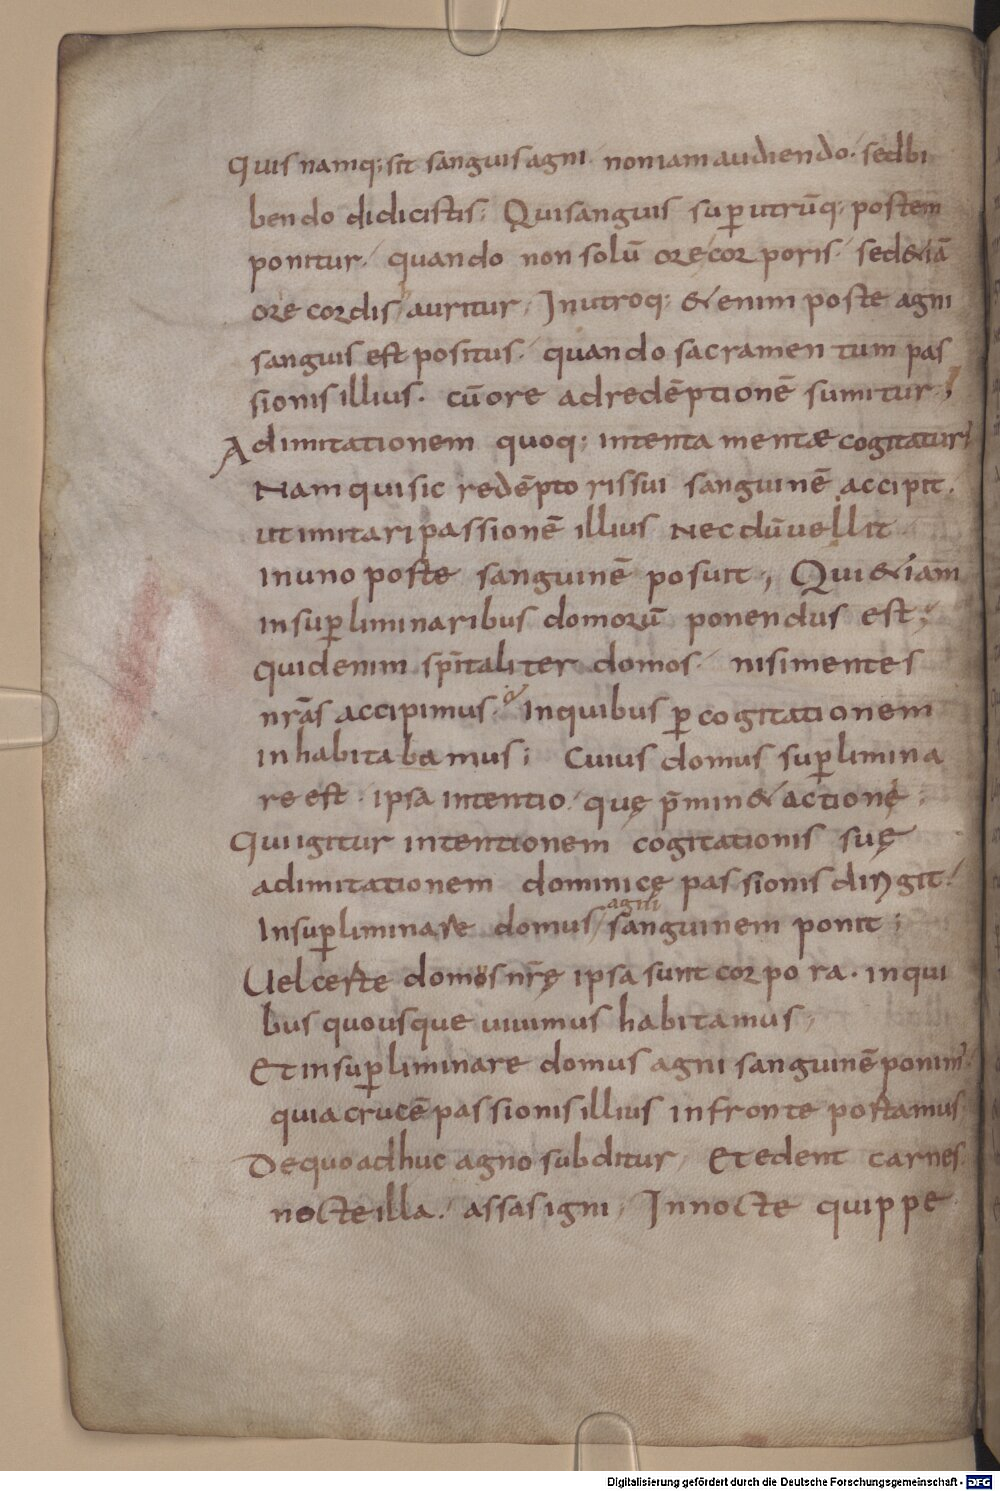 Quis namq; sit sanguis agni. non iam audiendo. sed bi
bendo didicistis; Qui sanguis sup utrūq; postem
ponitur. quando non solū ore corporis. sed & iā
ore cordis auritur, In utroq; & enim poste agni
sanguis est positus. quando sacramentum pas
sionis illius. cū ore ad redēptionē sumitur;
Ad imitationem quoq; intenta mentæ cogitatur;
Nam qui sic redēptoris sui sanguinē accipit.
ut imitari passionē illius necdū vellit
in uno poste sanguinē posuit, Qui & iam
in supliminaribus domorū ponendus est;
quid enim spitaliter domos. nisi mentes
nrās accipimus. In quibus p cogitationem
inhabitabamus; Cuius domus suplimina
re est. ipsa intentio. quę p̄min& actionę;
Qui igitur intentionem cogitationis suę
ad imitationem dominicę passionis dirigit.
agni
In supliminare domus sanguinem ponit;
Uel certe domos nrę ipsa sunt corpora. in qui
bus quousque uiuimus habitamus,
Et in supliminare domus agni sanguinē ponim;
quia crucē passionis illius in fronte portamus
De quo adhuc agno subditur, Et edent carnes
nocte illa. assas igni, In nocte quippe
Digitalisierung gefördert durch die Deutsche Forschungsgemeinschaft - DFG